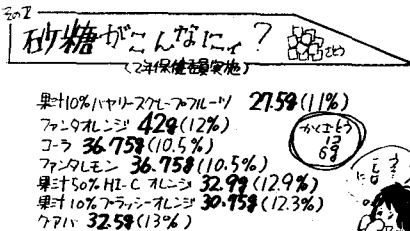 その2
砂糖がこんなに。?
さとう
(2年保健委員実施)
果汁10%ハヤリースグレープフルーツ 27.5g(11%)
ファンタオレンジ 42g(12%)
コーラ 36.75g(10.5%)
ファンタレモン 36.75g(10.5%)
果汁50%HI-C オレンジ 32.9g(12.9%)
果汁10%プラッシーオレンジ 30.75g(12.3%)
クアバ 32.5g(13%)
かくざとう
1コ
6g